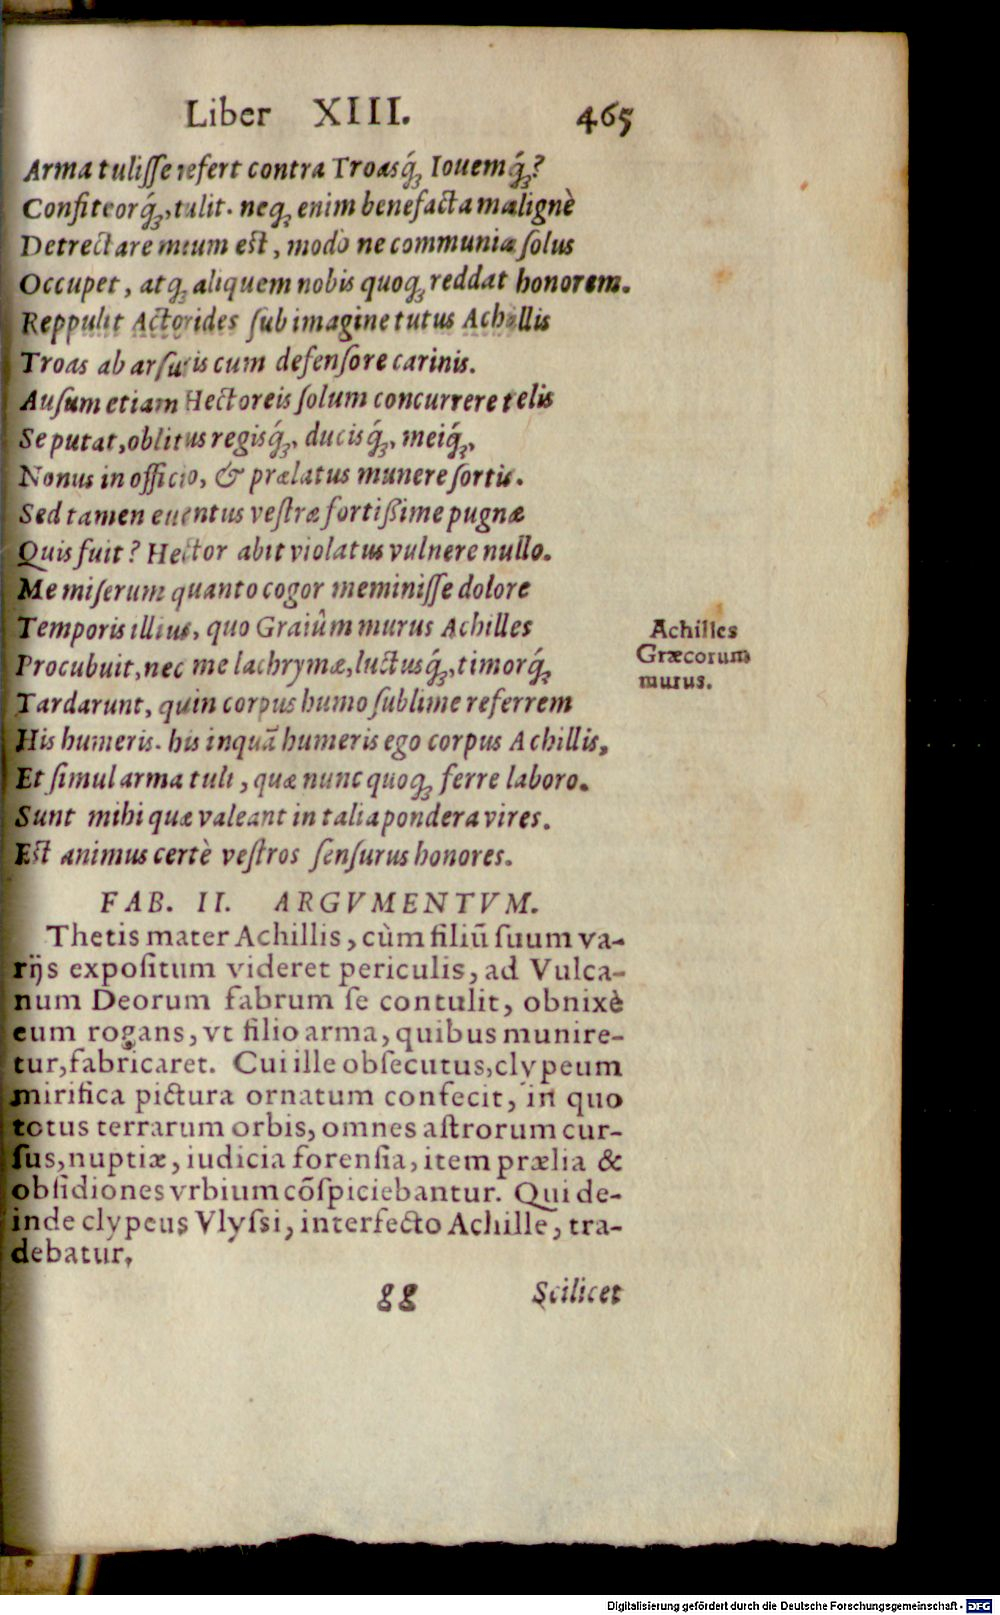 Liber XIII. 465
Arma tuliſſe refert contra Troasq́ꝫ Iouemq́ꝫ?
Confiteorq́ꝫ, tulit. neqꝫ enim benefacta malignè
Detrectare meum est, modò ne communia ſolus
Occupet, atqꝫ aliquem nobis quoqꝫ reddat honorem.
Reppulit Actorides ſub imagine tutus Achillis
Troas ab arſuris cum defenſore carinis.
Auſum etiam Hectoreis ſolum concurrere telis
Se putat, oblitus regisq́ꝫ, ducisq́ꝫ, meiq́ꝫ,
Nonus in officio, & prælatus munere ſortis.
Sed tamen euentus veſtræ fortißime pugnæ
Quis fuit? Hector abit violatus vulnere nullo.
Me miſerum quanto cogor meminiſſe dolore
Temporis illius, quo Graiûm murus Achilles
Achilles
Græcorum
murus.
Procubuit, nec me lachrymæ, luctusq́ꝫ, timorq́ꝫ
Tardarunt, quin corpus humo ſublime referrem
His humeris. his inquã humeris ego corpus Achillis,
Et ſimul arma tuli, quæ nunc quoqꝫ ferre laboro.
Sunt mihi quæ valeant in talia pondera vires.
Est animus certè veſtros ſenſurus honores.
FAB. II. ARGVMENTVM.
Thetis mater Achillis, cùm filiũ ſuum va-
rijs expoſitum videret periculis, ad Vulca-
num Deorum fabrum ſe contulit, obnixè
eum rogans, vt filio arma, quibus munire-
tur, fabricaret. Cui ille obſecutus, clypeum
mirifica pictura ornatum confecit, in quo
totus terrarum orbis, omnes aſtrorum cur-
ſus, nuptiæ, iudicia forenſia, item prælia &
obſidiones vrbium cõſpiciebantur. Qui de-
inde clypeus Vlyſsi, interfecto Achille, tra-
debatur,
gg Scilicet
Digitalisierung gefördert durch die Deutsche Forschungsgemeinschaft - DFG